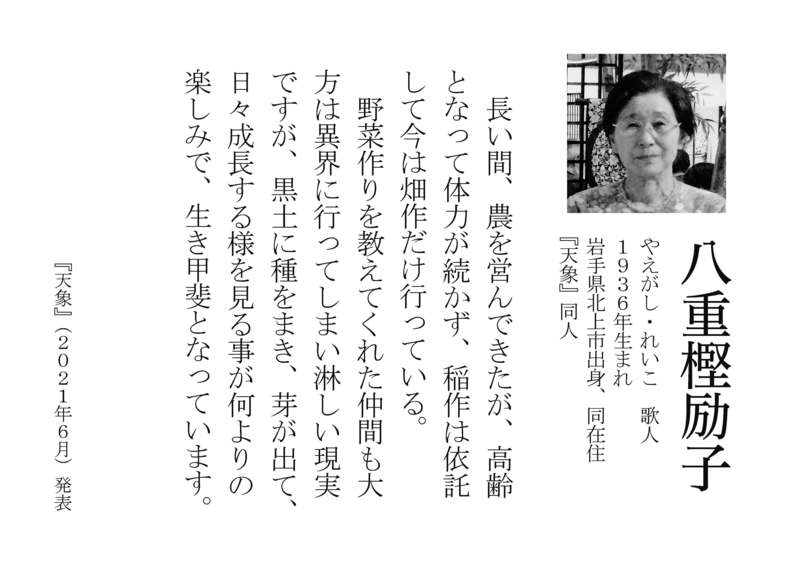 八重樫励子
やえがし・れいこ　歌人
1936年生まれ
岩手県北上市出身、同在住
『天象』同人
長い間、農を営んできたが、高齢
となって体力が続かず、稲作は依託
して今は畑作だけ行っている。
野菜作りを教えてくれた仲間も大
方は異界に行ってしまい淋しい現実
ですが、黒土に種をまき、芽が出て、
日々成長する様を見る事が何よりの
楽しみで、生き甲斐となっています。
『天象』（2021年6月）発表